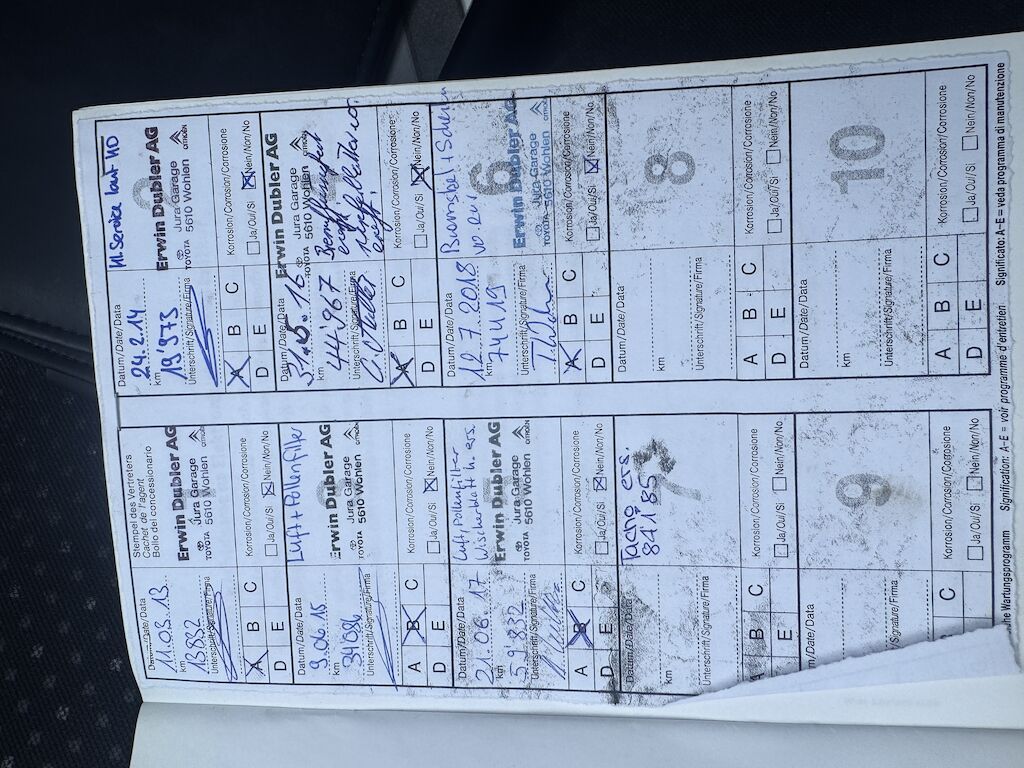 Stempel des Vertreters
Cachet de l'agent
Bollo del concessionario
Datum/Date/Data
11.03.13
km
15832
Unterschrift/Signature/Firma
Erwin Dubler AG
Jura Garage
TOYOTA 5610 Wohlen CITROËN
A B C
D E
Korrosion/Corrosion/Corrosione
Ja/Oui/Si Nein/Non/No
Kl. Service laut HD
Datum/Date/Data
24.2.14
km
19'373
Unterschrift/Signature/Firma
Erwin Dubler AG
Jura Garage
TOYOTA 5610 Wohlen CITROËN
A B C
D E
Korrosion/Corrosion/Corrosione
Ja/Oui/Si Nein/Non/No
Luft+Pollenfilter
Datum/Date/Data
9.06.15
km
34086
Unterschrift/Signature/Firma
Erwin Dubler AG
Jura Garage
TOYOTA 5610 Wohlen CITROËN
A B C
D E
Korrosion/Corrosion/Corrosione
Ja/Oui/Si Nein/Non/No
Datum/Date/Data
km
44'967
Unterschrift/Signature/Firma
Erwin Dubler AG
Jura Garage
TOYOTA 5610 Wohlen
A B C
D E
Korrosion/Corrosion/Corrosione
Ja/Oui/Si Nein/Non/No
Luft Pollenfilter
Wischerblatt h. ers.
Datum/Date/Data
21.06.17
km
59'832
Unterschrift/Signature/Firma
Erwin Dubler AG
Jura Garage
TOYOTA 5610 Wohlen CITROËN
A B C
D E
Korrosion/Corrosion/Corrosione
Ja/Oui/Si Nein/Non/No
Bremsbel+Scheiben
Datum/Date/Data
12.7.2018
km
74419
Unterschrift/Signature/Firma
6
Erwin Dubler AG
Jura-Garage
TOYOTA 5610 Wohlen
A B C
D E
Korrosion/Corrosion/Corrosione
Ja/Oui/Si Nein/Non/No
Tacho ers.
84'185
7
Datum/Date/Data
km
Unterschrift/Signature/Firma
A B C
D E
Korrosion/Corrosion/Corrosione
Ja/Oui/Si Nein/Non/No
8
Datum/Date/Data
km
Unterschrift/Signature/Firma
A B C
D E
Korrosion/Corrosion/Corrosione
Ja/Oui/Si Nein/Non/No
9
/Data
/Signature/Firma
C
E
Korrosion/Corrosion/Corrosione
Ja/Oui/Si Nein/Non/No
10
Datum/Date/Data
km
Unterschrift/Signature/Firma
A B C
D E
Korrosion/Corrosion/Corrosione
Ja/Oui/Si Nein/Non/No
he Wertungsprogramm Signification: A–E = voir programme d'entretien Significato: A–E = veda programma di manutenzione